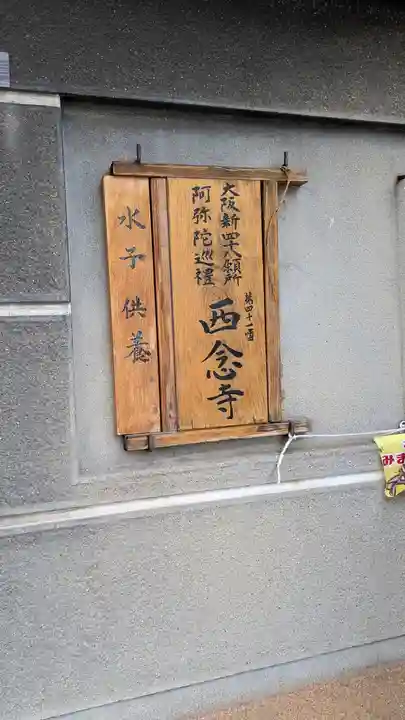 大阪新四十八願所
阿弥陀巡禮
第四十一番
西念寺
水子供養
みま